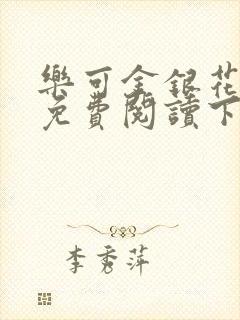 樂可金銀花
免費閱讀下
李秀萍